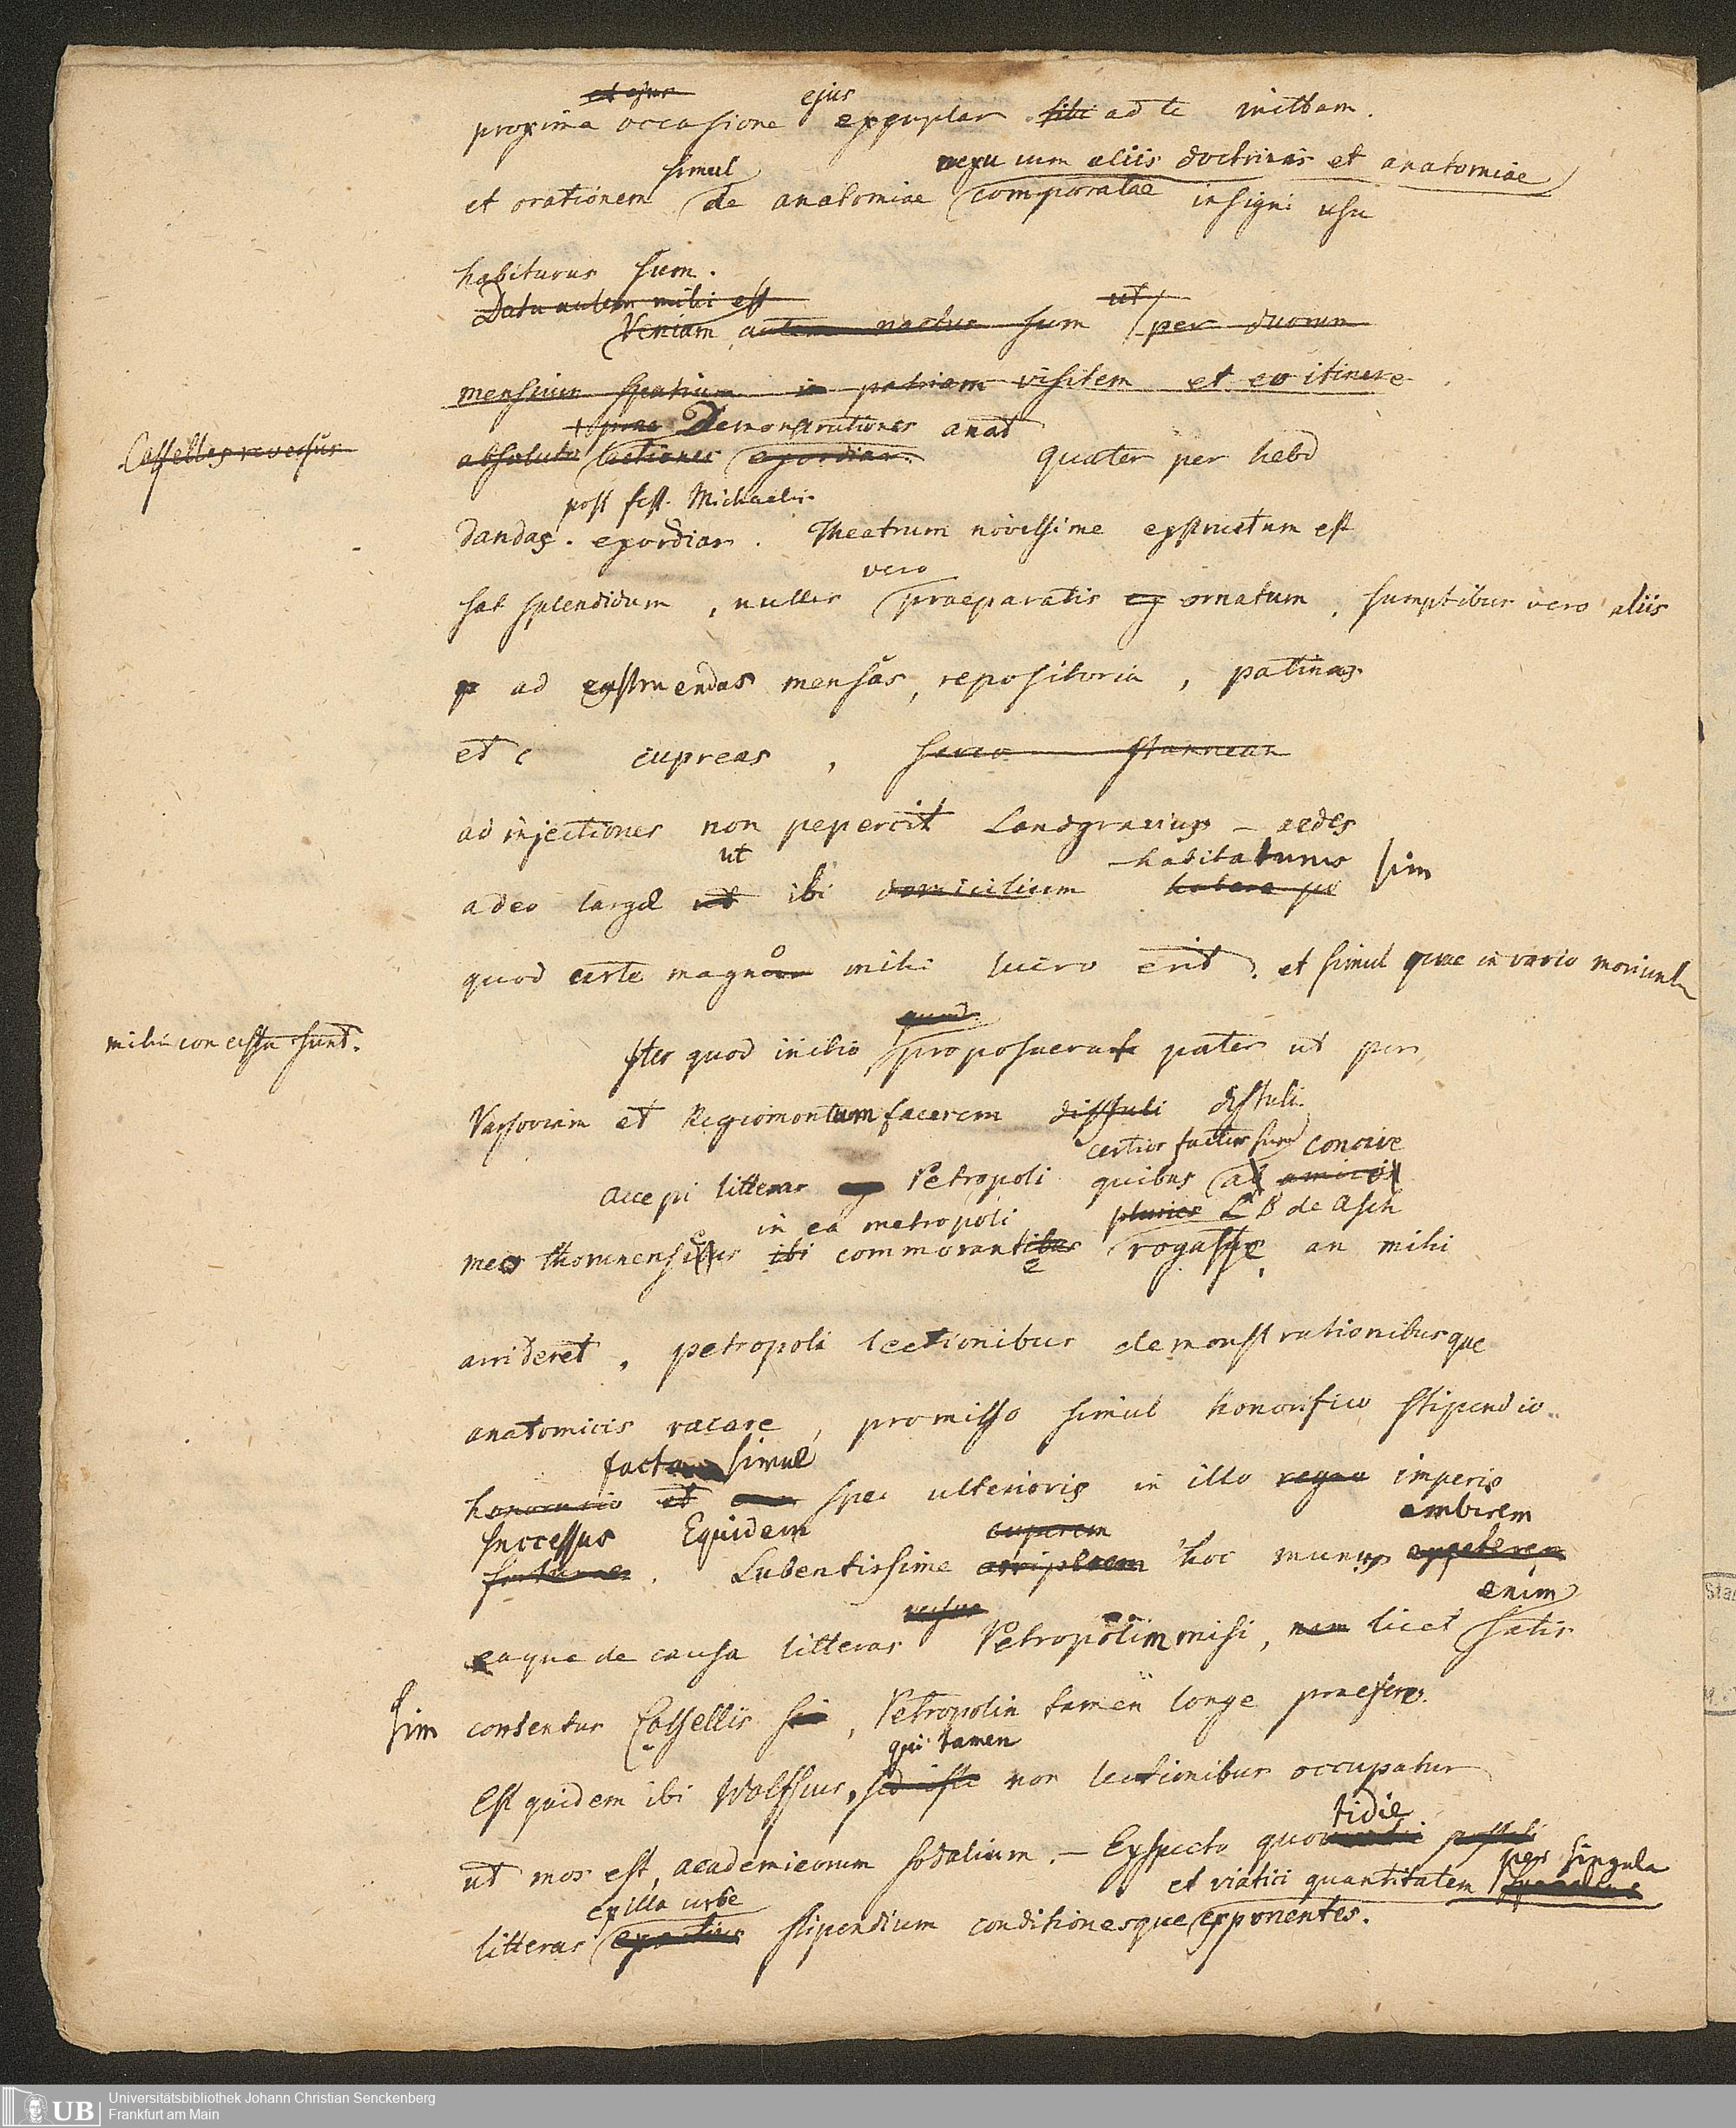 et ejus ejus
proxima occasione exemplar tibi ad te mittam.
simul nexu cum aliis doctrinis et anatomiae
et orationem de anatomiae comparatae insigni usu
habiturus sum.
Data autem mihi est ut
Veniam autem nactus sum per duorum
mensium spatium patriam visitem et eo itinere
Demonstrationes anat
Cassellas reversus
absoluto lectiones exordiar. quater per hebd
post fest. Michaelis
dandas. exordiar. Theatrum novissime exstructum est
vero
sat splendidum, nullis praeparatis ornatum, sumptibus vero aliis
ad exstruendas mensas, repositoria, patinas
et c cupreas, stanneas
ad injectiones non pepercit Landgravius – aedes
ut habitaturus sim
adeo large ut ibi domicilium habere
quod certe magno mihi lucro erit. et simul quae in vario moriunt
mihi concessa sunt.
quod
Iter quod initio proposuerat pater ut per
Varsoviam et Regiomontum facerem distuli distuli.
certior factus sum concive
Accepi litteras Petropoli quibus ab amicis
in ea metropoli pluries L B de Asch
meo Thorunensi ibi commorante rogasse, an mihi
arrideret, petropoli lectionibus demonstrationibusque
anatomicis vacare, promisso simul honorifico stipendio
facta simul
honorario et spei ulterioris in illo regno imperio
successus Equidem cuperem ambirem
fortunae. Lubentissime arriperem hoc munus appeterem
enim
eaque de causa litteras Petropolin misi, nam licet satis
sim contentus Cassellis, Petropolin tamen longe praefero.
qui tamen
Est quidem ibi Wolffius, sed iste non lectionibus occupatur
tidie
ut mos est, academicorum sodalium. – Exspecto quo
et viatici quantitatem per singula
ex illa urbe
litteras stipendium conditionesque exponentes.
Universitätsbibliothek Johann Christian Senckenberg
Frankfurt am Main
UB